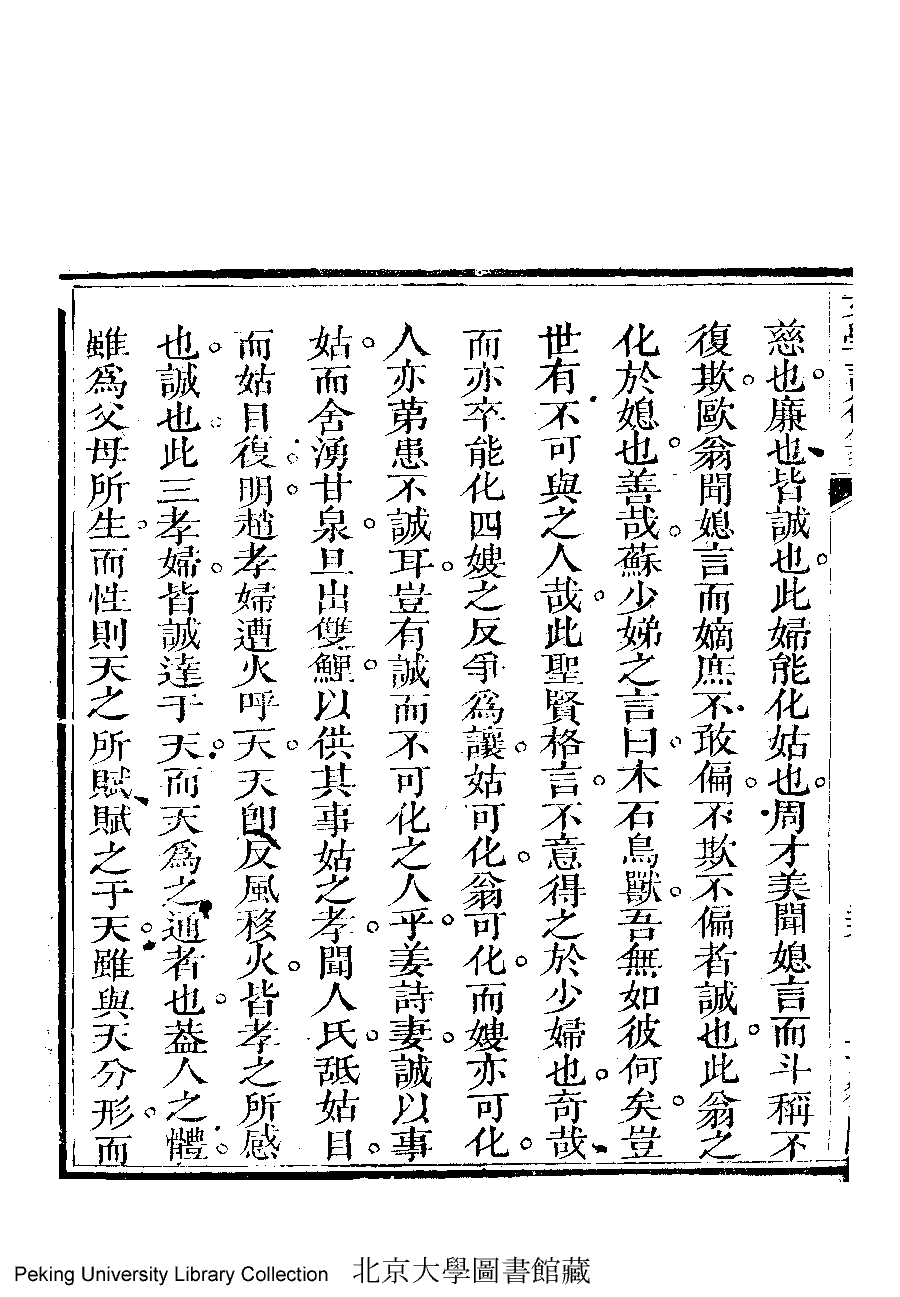 慈也。廉也。皆誠也。此婦能化姑也。周才美聞媳言而斗稱不
復欺。歐翁聞媳言而嫡庶不敢偏。不欺不偏者誠也。此翁之
化於媳也。善哉。蘇少娣之言曰。木石鳥獸。吾無如彼何矣。豈
世有不可與之人哉。此聖賢格言。不意得之於少婦也。奇哉
而亦卒能化四嫂之反爭為讓。姑可化。翁可化。而嫂亦可化。
人亦第患不誠耳。豈有誠而不可化之人乎。姜詩妻。誠以事
姑。而舍湧甘泉。旦出雙鯉。以供其事姑之孝。聞人氏。舐姑目。
而姑目復明。趙孝婦遭火呼天。天卽反風移火。皆孝之所感
也。誠也。此三孝婦。皆誠達于天。而天為之通者也。葢人之體。
雖為父母所生。而性則天之所賦。賦之于天。雖與天分形。而
Peking University Library Collection 北京大學圖書館藏